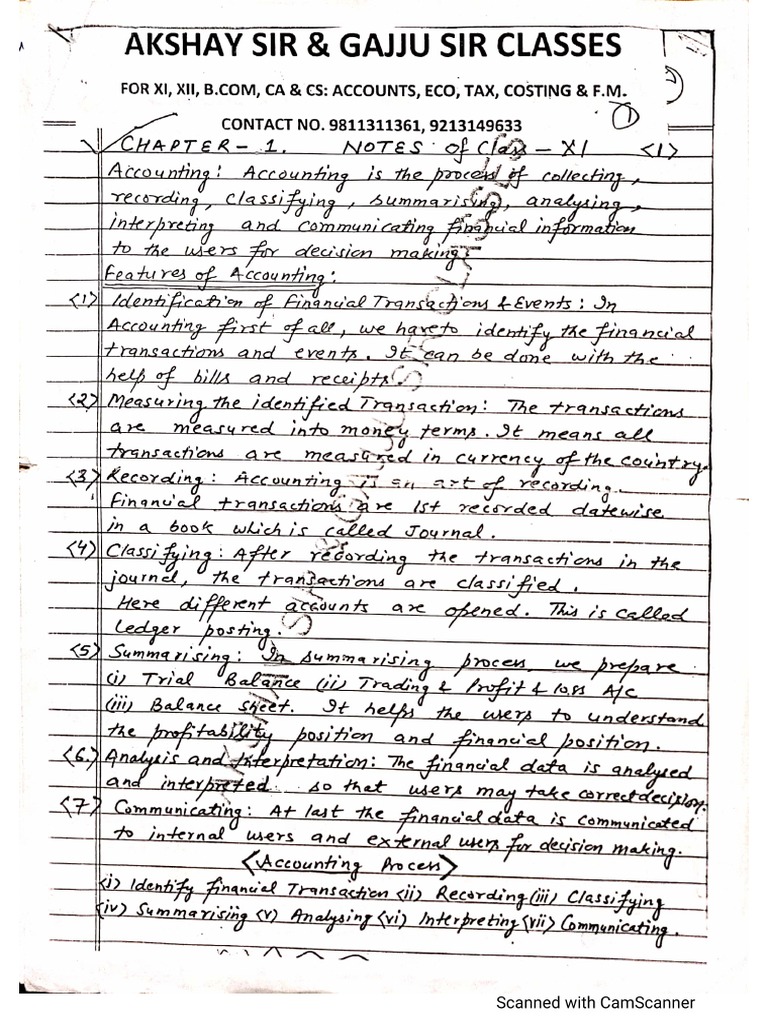 AKSHAY SIR & GAJJU SIR CLASSES
FOR XI, XII, B.COM, CA & CS: ACCOUNTS, ECO, TAX, COSTING & F.M.
1
CONTACT NO. 9811311361, 9213149633
CHAPTER - 1. NOTES of Class - XI <1>
Accounting: Accounting is the process of collecting,
recording, classifying, summarising, analysing,
interpreting and communicating financial information
to the users for decision making.
Features of Accounting:
<1> Identification of Financial Transactions & Events: In
Accounting first of all, we have to identify the financial
transactions and events. It can be done with the
help of bills and receipts.
<2> Measuring the identified Transaction: The transactions
are measured into money terms. It means all
transactions are measured in currency of the country.
<3> Recording: Accounting is an art of recording.
Financial transactions are 1st recorded datewise
in a book which is called Journal.
<4> Classifying: After recording the transactions in the
journal, the transactions are classified.
Here different accounts are opened. This is called
Ledger posting.
<5> Summarising: In summarising process, we prepare
(i) Trial Balance (ii) Trading & Profit & loss A/c
(iii) Balance sheet. It helps the users to understand
the profitability position and financial position.
<6.> Analysis and Interpretation: The financial data is analysed
and interpreted so that users may take correct decision.
<7> Communicating: At last the financial data is communicated
to internal users and external users for decision making.
<Accounting Process>
<i> Identify financial Transaction <ii> Recording (iii) Classifying
(iv) Summarising <v> Analysing <vi> Interpreting <vii> Communicating.
Scanned with CamScanner